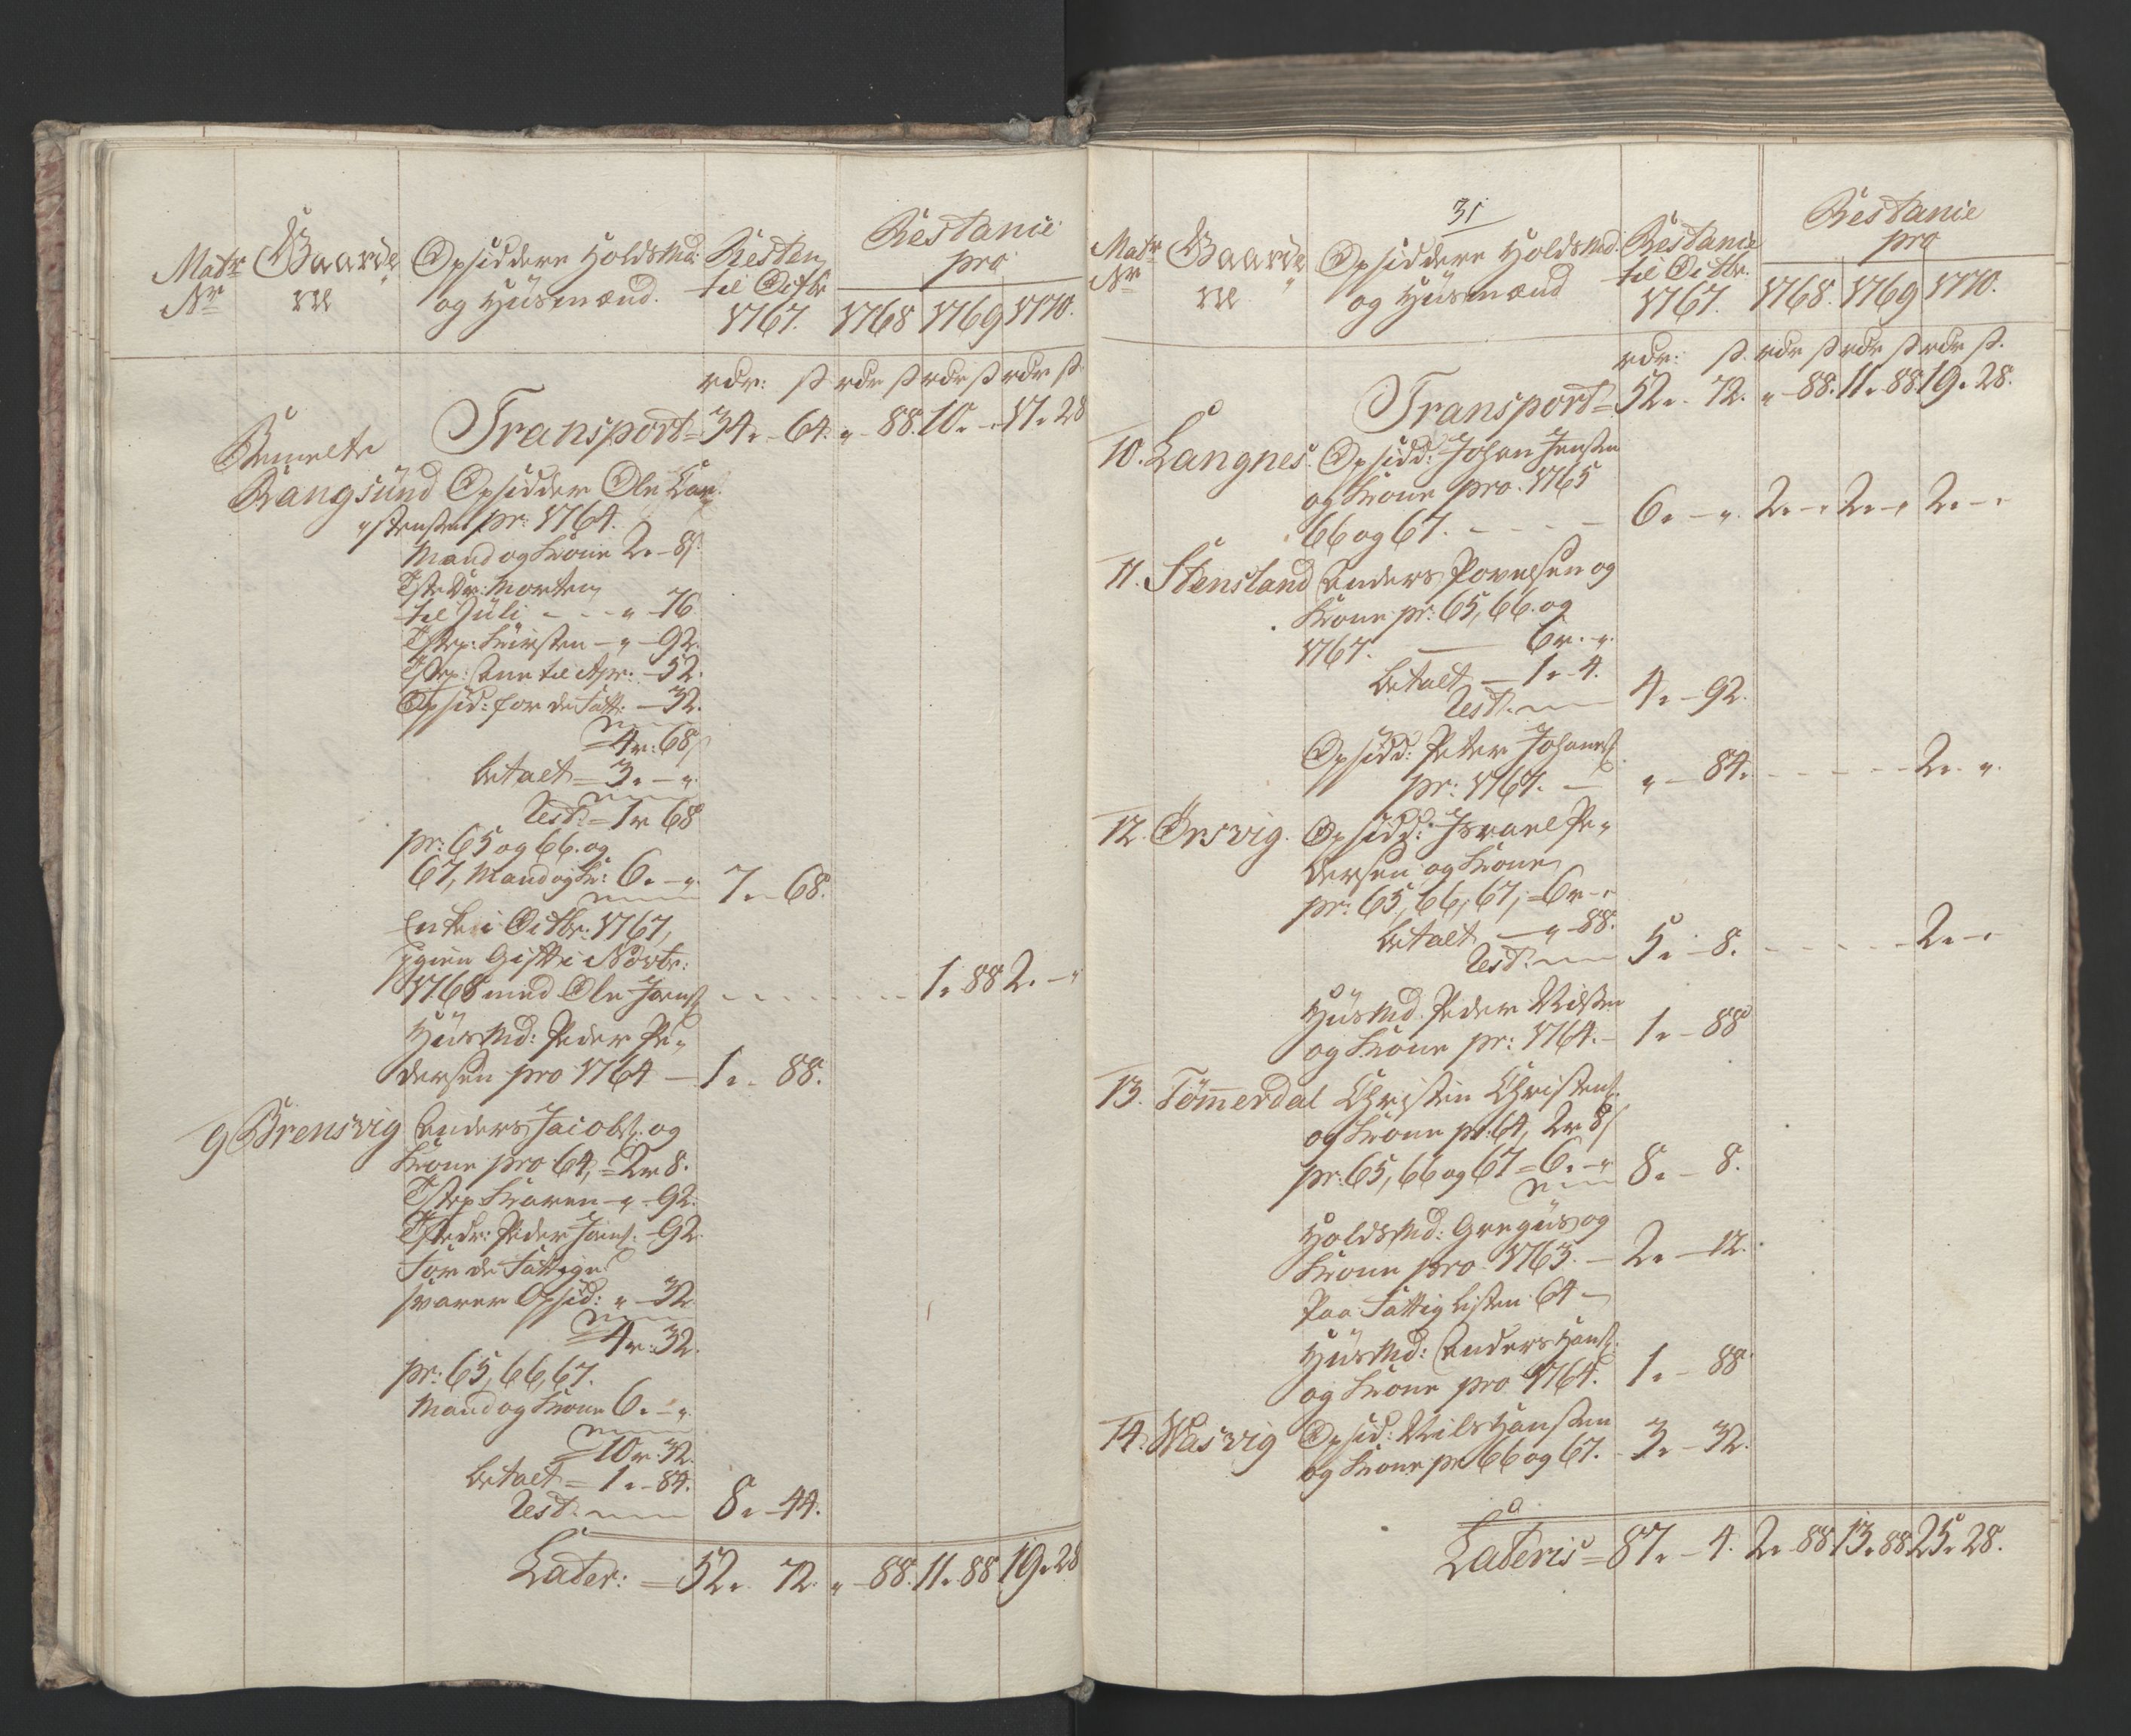 Matr Gaarde Opsiddere Holdsmd: Resten Restance
Nr og Huusmænd. til Octbr pro
1767. 1768 1769 1770.
rdr: ß rdr ß rdr ß rdr ß
Transport = 34 „ 64. „ - 88. 10 „ - „ 17 „ 28
Bemelte
Rangsund Opsidder Ole Lar„
„stensen pr: 1764.
Mand og Kone 2 „ - 8ß
Tste Dr: Morten
til Juli - - - „ - 76
Tstep: Kirsten - „ - 92.
Tstep: Ane til Apr: - 52.
Opsid: for de Fatt: - 32.
= 4 r: 68ß
betalt = 3 „ - „
Rest: = 1 r 68
pr: 65 og 66. og
67, Mand og K: 6 „ - „ 7 „ - 68.
Enke i Octbr: 1767,
igien Gift i Novbr:
1768 med Ole Joens: - - - - - - - 1 „ 88 2 „ - „
Huusmd: Peder Pe„
dersen pro 1764 — 1 „ - 88.
9 Brensvig Anders Jacobs: og
Kone pro 64, = 2 r 8.
Tstep Karen - „ - 92.
Tstedr: Peder Joens: - 92.
For de Fattige
svarer Opsid: „ - 32
= 4 r: 32.
pr: 65, 66, 67.
Mand og Kone 6 „ - „
= 10 r: 32.
betalt = 1 „ - 84.
Rest: 8 „ - 44.
Later: = 52 „ 72. „ - 88. 11 „ 88 19 „ 28
31
Matr Gaarde Opsiddere Holdsmd. Restance Restance
Nr og Huusmænd til Octbr. pro
1767. 1768. 1769 1770.
rdr: ß. rdr ß rdr ß rdr ß.
Transport = 52 „ - 72. „ - 88. 11 „ 88 19 „ 28.
10. Langnes. Opsidd: Johan Jensen
og Kone pro. 1765
66 og 67. - - - - 6 „ - „ 2 „ - „ 2 „ - „ 2 „ - „
11. Stensland Anders Povelsen og
Kone pr: 65, 66. og
1767. — 6 r. „
betalt — 1 „ - 4.
Rest: 4 „ - 92.
Opsidd: Peter Johans:
pr: 1767. — „ - 84. - - - - - 2 „ „
12. Örsvig. Opsidd: Israel Pe„
dersen og Kone
pr: 65, 66, 67, = 6 r - „
betalt — „ - 88.
Rest: 5 „ - 8. - - - - - 2 „ - „
Huusmd. Peder Nilsen
og Kone pr: 1764. - 1 „ - 88
13. Tömmerdal Christen Christens:
og Kone pr: 64, 2 r 8ß
pr: 65, 66 og 67 = 6 „ - „ 8 „ - 8.
Holdsmd: Gregus og
Kone pro 1763. - 2 „ - 12.
Paa Fattig Listen 64 -
Huusmd: Anders Hans:
og Kone pro 1764. 1 „ - 88
14. Wasvig Opsid: Nils Hansen
og Kone pr 66 og 67. - 3 „ - 32.
Lateris = 87 „ - 4. 2 „ - 88 13 „ 88 25 „ 28.